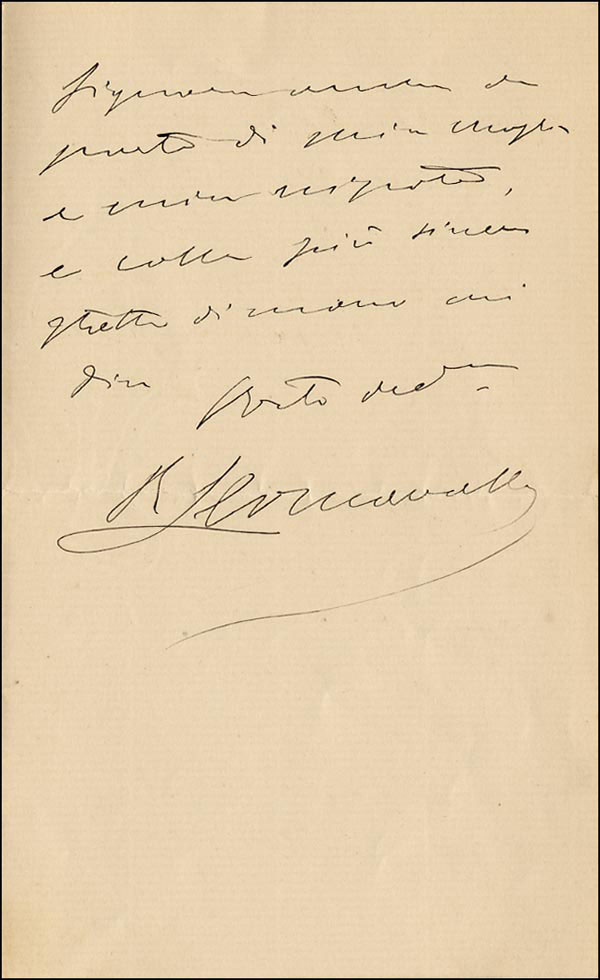 Signora anche da
parte di mia moglie
e mia nipote,
e colla più sincera
stretta di mano mi
dico
R Leoncavallo